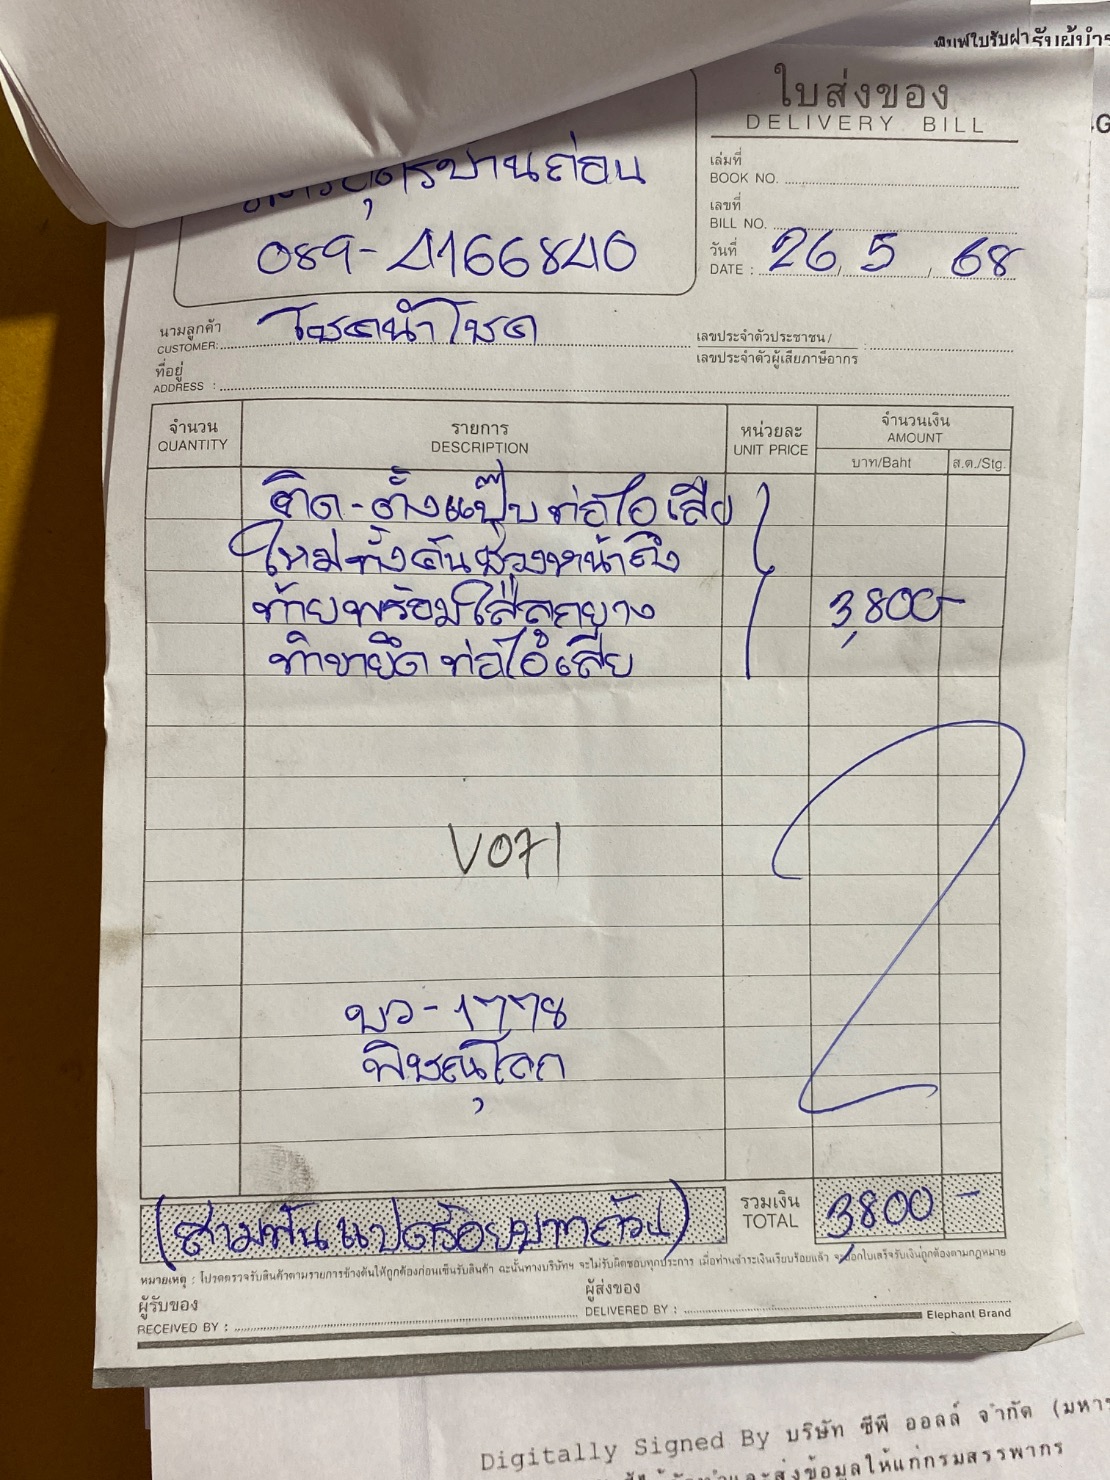 พิมพ์ใบรับฝา รับผู้นำร
ใบส่งของ
DELIVERY BILL
เล่มที่
BOOK NO.
เลขที่
BILL NO.
วันที่
DATE : 26 / 5 / 68
บ้านถ่อน
089-4166840
นามลูกค้า
CUSTOMER: โชคนำโชค
เลขประจำตัวประชาชน/
เลขประจำตัวผู้เสียภาษีอากร
ที่อยู่
ADDRESS :
จำนวน รายการ หน่วยละ จำนวนเงิน
QUANTITY DESCRIPTION UNIT PRICE AMOUNT
บาท/Baht ส.ต./Stg.
ติด-ตั้งแป๊บท่อไอเสีย
ใหม่ทั้งคันช่วงหน้าถึง
ท้ายพร้อมใส่ลูกยาง 3,800-
ทำขายึดท่อไอเสีย
V071
บว-1778
พิษณุโลก
(สามพันแปดร้อยบาทถ้วน) รวมเงิน 3,800 -
TOTAL
หมายเหตุ : โปรดตรวจรับสินค้าตามรายการข้างต้นให้ถูกต้องก่อนเซ็นรับสินค้า ฉะนั้นทางบริษัทฯ จะไม่รับผิดชอบทุกประการ เมื่อท่านชำระเงินเรียบร้อยแล้ว จะออกใบเสร็จรับเงินถูกต้องตามกฎหมาย
ผู้รับของ
RECEIVED BY :
ผู้ส่งของ
DELIVERED BY :
Elephant Brand
Digitally Signed By บริษัท ซีพี ออลล์ จำกัด (มหาช
ส่งข้อมูลให้แก่กรมสรรพากร